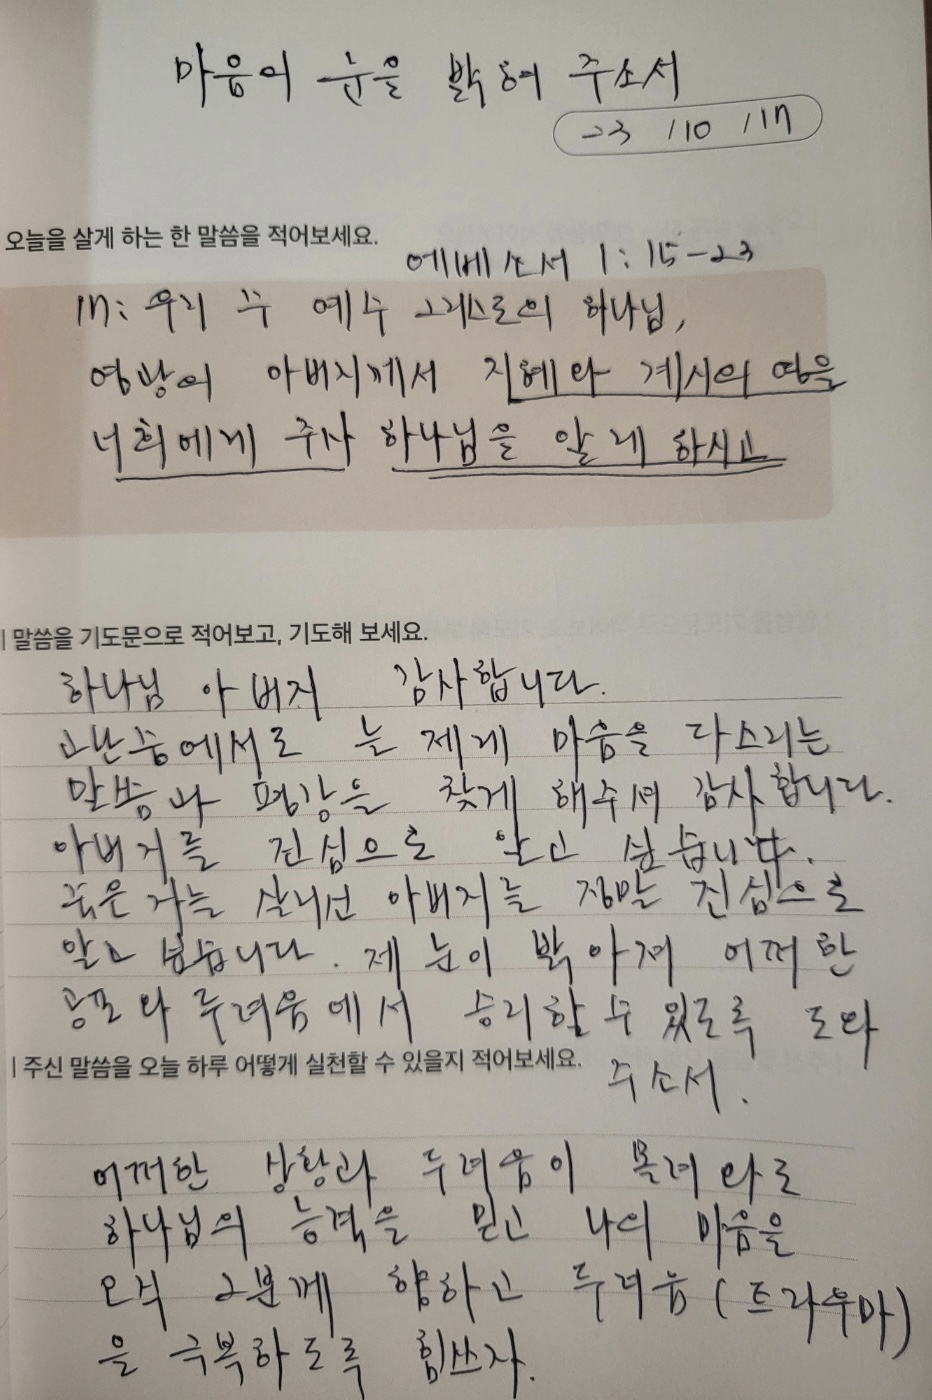 마음의 눈을 밝혀 주소서
23 /10 /17
오늘을 살게 하는 한 말씀을 적어보세요.
에베소서 1:15-23
17: 우리 주 예수 그리스도의 하나님,
영광의 아버지께서 지혜와 계시의 영을
너희에게 주사 하나님을 알게 하시고
| 말씀을 기도문으로 적어보고, 기도해 보세요.
하나님 아버지 감사합니다.
고난중에서도 늘 제게 마음을 다스리는
말씀과 평강을 찾게 해주셔 감사합니다.
아버지를 진심으로 알고 싶습니다.
죽은 자를 살리신 아버지를 정말 진심으로
알고 싶습니다. 제 눈이 밝아져 어떠한
공포와 두려움에서 승리할 수 있도록 도와
주소서.
| 주신 말씀을 오늘 하루 어떻게 실천할 수 있을지 적어보세요.
어떠한 상황과 두려움이 몰려와도
하나님의 능력을 믿고 나의 마음을
오직 그분께 향하고 두려움(트라우마)
을 극복하도록 힘쓰자.